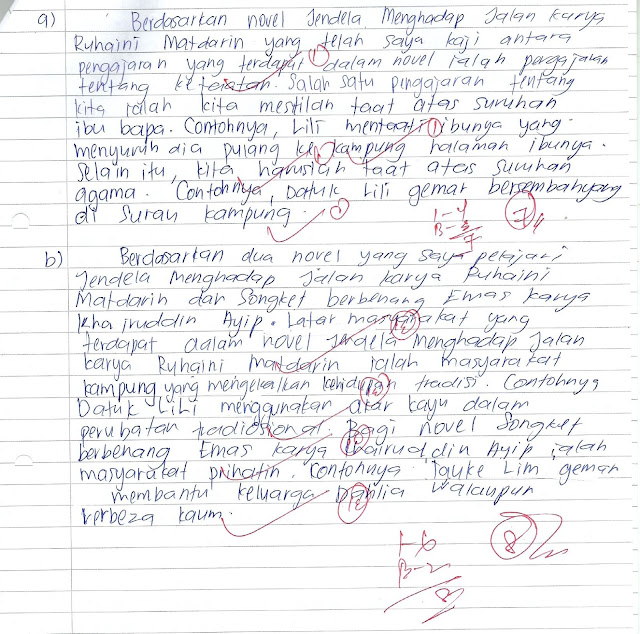 a) Berdasarkan novel Jendela Menghadap Jalan karya
Ruhaini Matdarin yang telah saya kaji antara
pengajaran yang terdapat dalam novel ialah pengajaran
tentang ketaatan. Salah satu pengajaran tentang
kita ialah kita mestilah taat atas suruhan
ibu bapa. Contohnya, Lili mentaati ibunya yang
menyuruh dia pulang ke kampung halaman ibunya.
Selain itu, kita haruslah taat atas suruhan
agama. Contohnya, Datuk Lili gemar bersembahyang
di surau kampung.
I-4
B-3
7
7
b) Berdasarkan dua novel yang saya pelajari
Jendela Menghadap Jalan karya Ruhaini
Matdarin dan Songket berbenang Emas karya
Khairuddin Ayip. Latar masyarakat yang
terdapat dalam novel Jendela Menghadap Jalan
karya Ruhaini matdarin ialah masyarakat
kampung yang mengekalkan kehidupan tradisi. Contohnya
Datuk LiLi menggunakan akar kayu dalam
perubatan tradiosional. Bagi novel Songket
berbenang Emas karya Khairuddin Ayip ialah
masyarakat prihatin. Contohnya Tauke Lim gemar
membantu keluarga Dahlia walaupun
berbeza kaum.
I-6
B-2
8
8